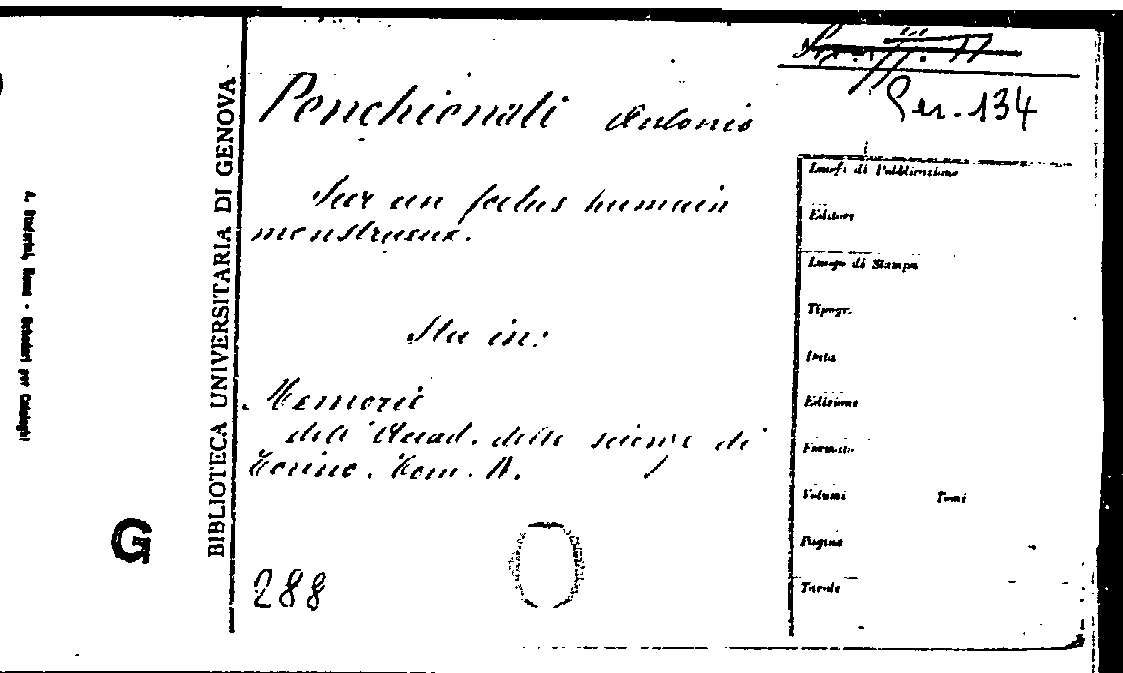 Ger. 134
Penchienati Antonio
Sur un foetus humain
monstrueux.
Sta in:
Memorie
dell'Accad. delle scienze di
Torino. Tom.
288
BIBLIOTECA UNIVERSITARIA DI GENOVA
G
Luogo di Pubblicazione
Editore
Luogo di Stampa
Tipogr.
Data
Edizione
Formato
Volumi Tomi
Pagine
Tavole